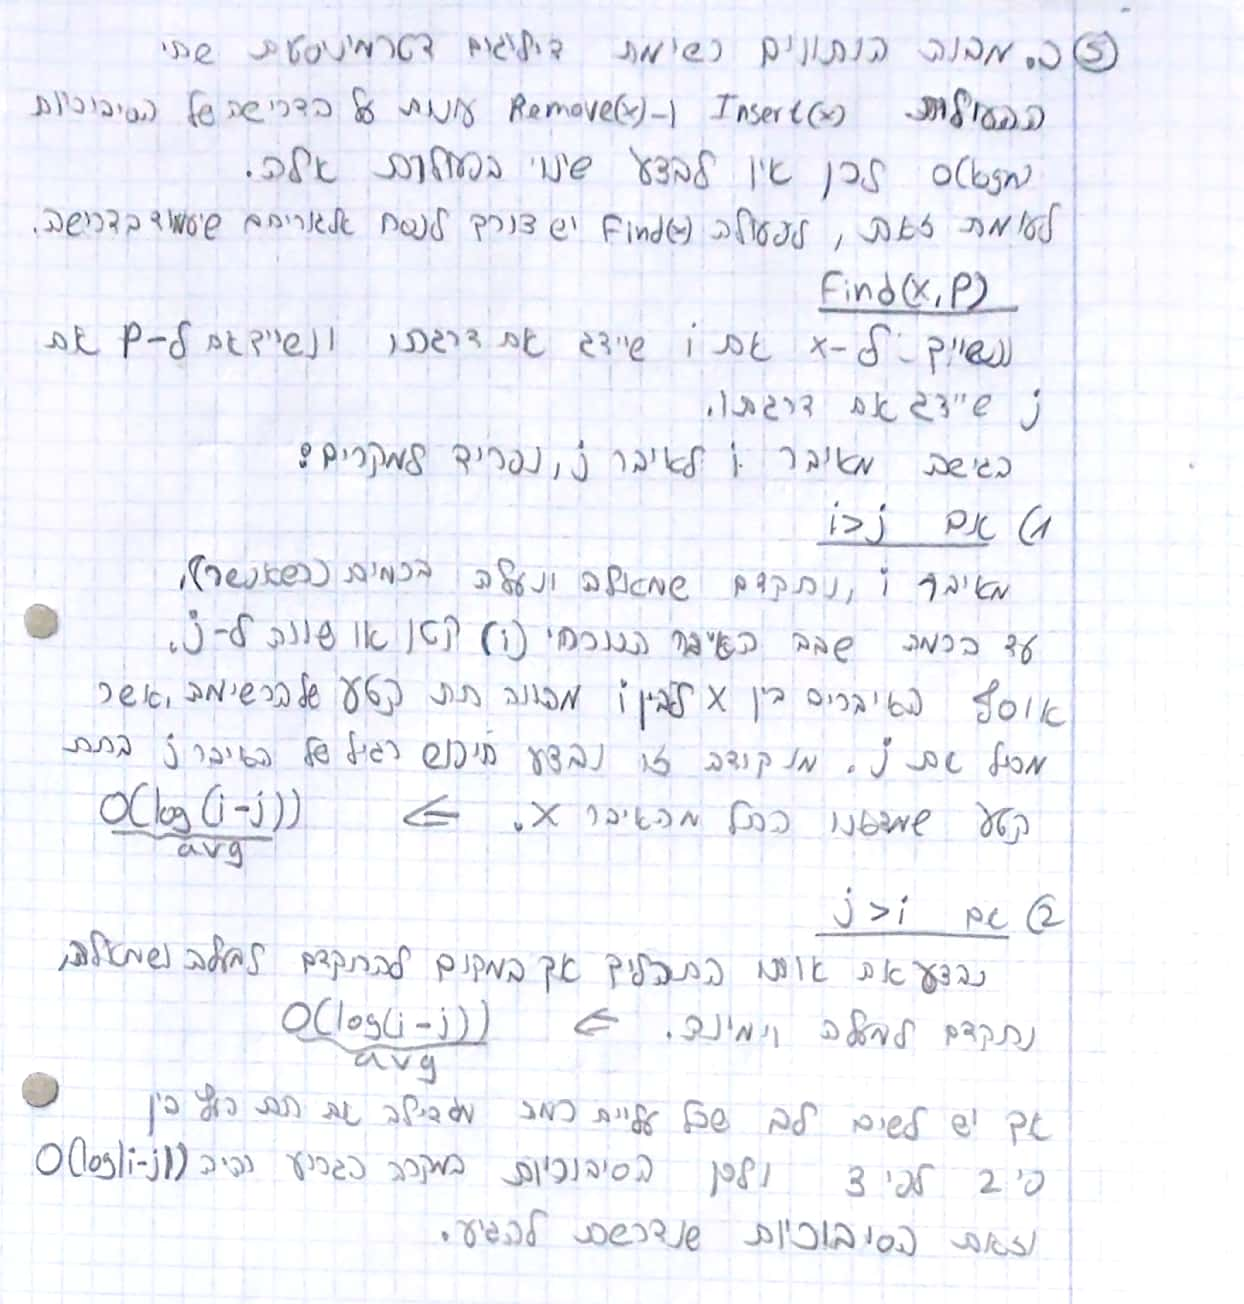 ③ ב. מבנה הנתונים רשימת דילוגים דטרמיניסטית שתי
הפעולות Insert(x) ו-Remove(x) עונות על הדרישה של הסיבוכיות
O(logn) לכן אין לבצע שינוי בפעולות אלה.
לעומת זאת, לפעולה Find(x) יש צורך לנסח אלגוריתם שיעמוד בדרישה.
Find(x,p)
נשייך ל-x את i שייצג את דרגתו, ונשייך ל-p את
j שייצג את דרגתו.
בגישת מאיבר i לאיבר j, נפריד למקרים:
1) אם i>j
מאיבר i, נתקדם שמאלה ונעלה ברמות (כשאפשר),
עד לרמה שבה האיבר הנוכחי (i) קטן או שווה ל-j.
אוסף האיברים בין x לבין i מהווה תת קטע של הרשימה, אשר
מכיל את j. מנקודה זו נבצע חיפוש רגיל של האיבר j בתת
קטע שמצאנו החל מהאיבר x. ⇐ O(log(i-j))
avg
2) אם j>i
נבצע את אותו התהליך אך במקום להתקדם למעלה ושמאלה,
נתקדם למעלה וימינה. ⇐ O(log(i-j))
avg
אך יש לשים לב שכל עליית רמה מגדילה את תת הקטע בין
פי 2 לפי 3 ולכן הסיבוכיות במקרה הגרוע תהיה O(log|i-j|)
וזאת הסיבוכיות שנדרשת להגיע.